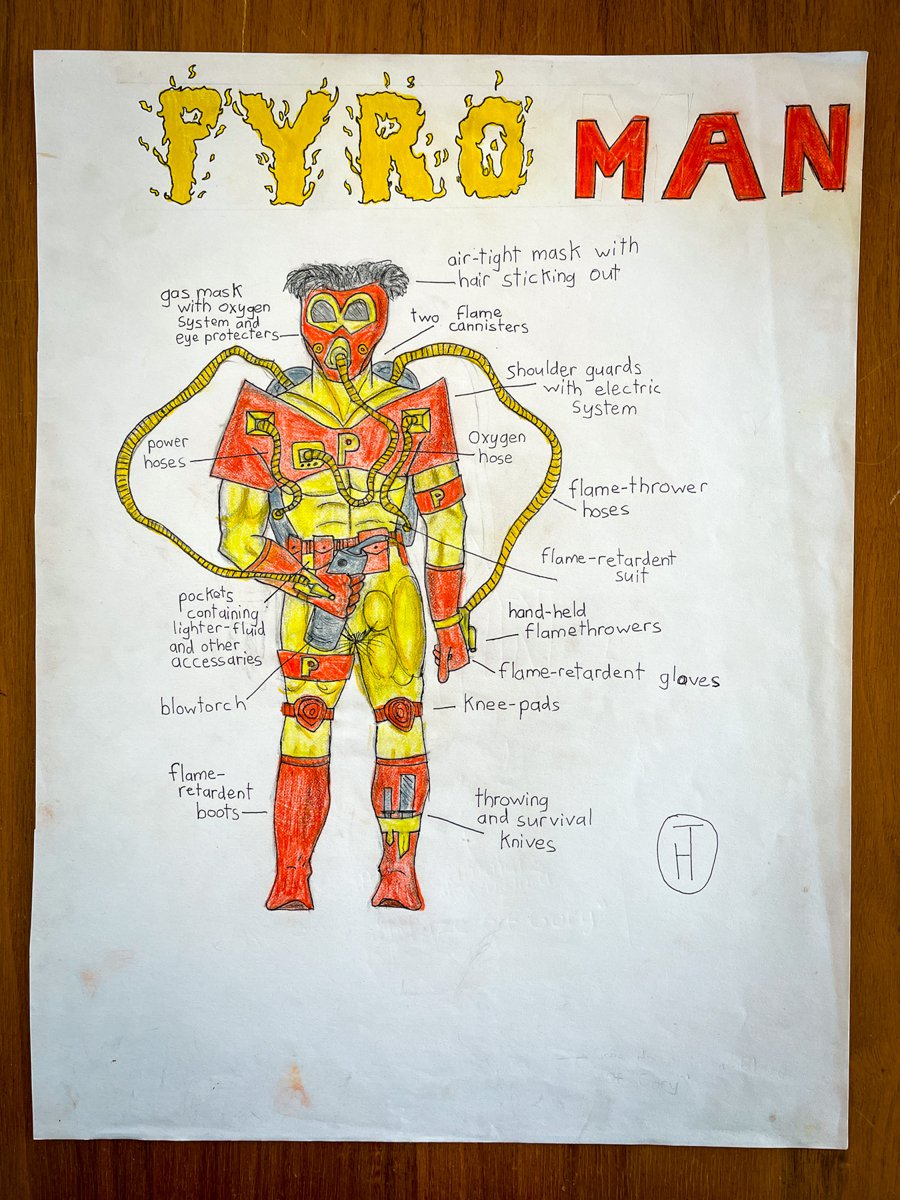 PYRO MAN
air-tight mask with
hair sticking out
gas mask
with oxygen
system and
eye protecters
two flame
cannisters
shoulder guards
with electric
system
power
hoses
P
Oxygen
hose
P
flame-thrower
hoses
flame-retardent
suit
pockets
containing
lighter-fluid
and other
accessaries
hand-held
flamethrowers
P
flame-retardent gloves
blowtorch
Knee-pads
flame-
retardent
boots
throwing
and survival
knives
TH